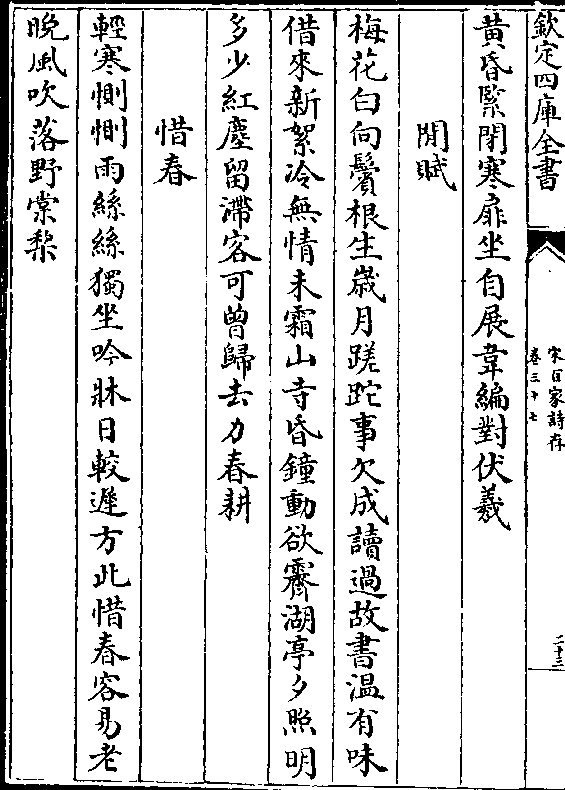 欽定四庫全書
宋百家詩存
卷三十七
二十三
黄昏緊閉寒扉坐自展韋編對伏羲
閒賦
梅花白向鬢根生歲月蹉跎事欠成讀過故書温有味
借來新絮冷無情未霜山寺昏鐘動欲霽湖亭夕照明
多少紅塵留滯客可曾歸去力春耕
惜春
輕寒惻惻雨絲絲獨坐吟牀日較遲方此惜春容易老
晩風吹落野棠梨